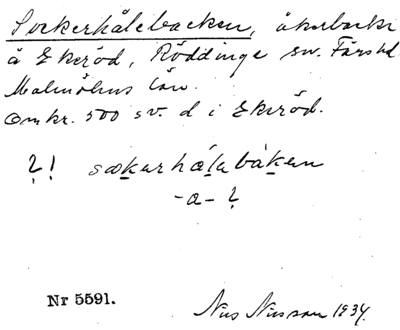 Sockerhålebacken, åkerbacke
å Ekeröd, Röddinge sn. Färs hd.
Malmöhus län.
Omkr. 500 sv. d i Ekeröd.
?! sɷkarhålabákan
-a- ?
Nr 5591.
Nils Nilsson 1934.